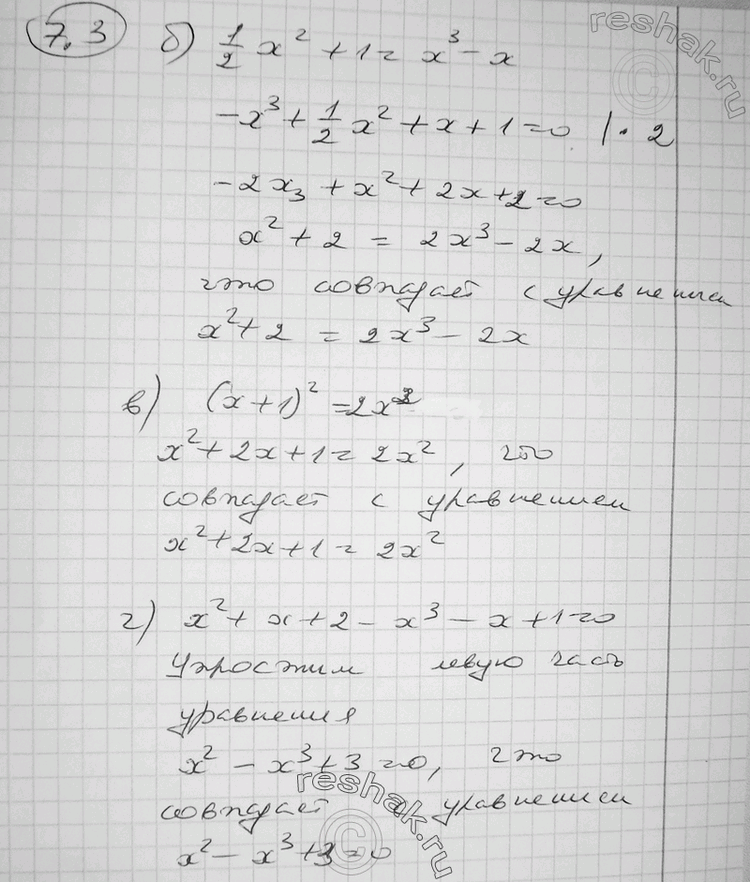 7.3 б) 1/2 x² + 1 = x³ - x
-x³ + 1/2 x² + x + 1 = 0 | · 2
-2x₃ + x² + 2x + 2 = 0
x² + 2 = 2x³ - 2x,
что совпадает с уравнением
x² + 2 = 2x³ - 2x
в) (x + 1)² = 2x²
x² + 2x + 1 = 2x², что
совпадает с уравнением
x² + 2x + 1 = 2x²
г) x² + x + 2 - x³ - x + 1 = 0
Упростим левую часть
уравнения
x² - x³ + 3 = 0, что
совпадает с уравнением
x² - x³ + 3 = 0
reshak.ru
reshak.ru